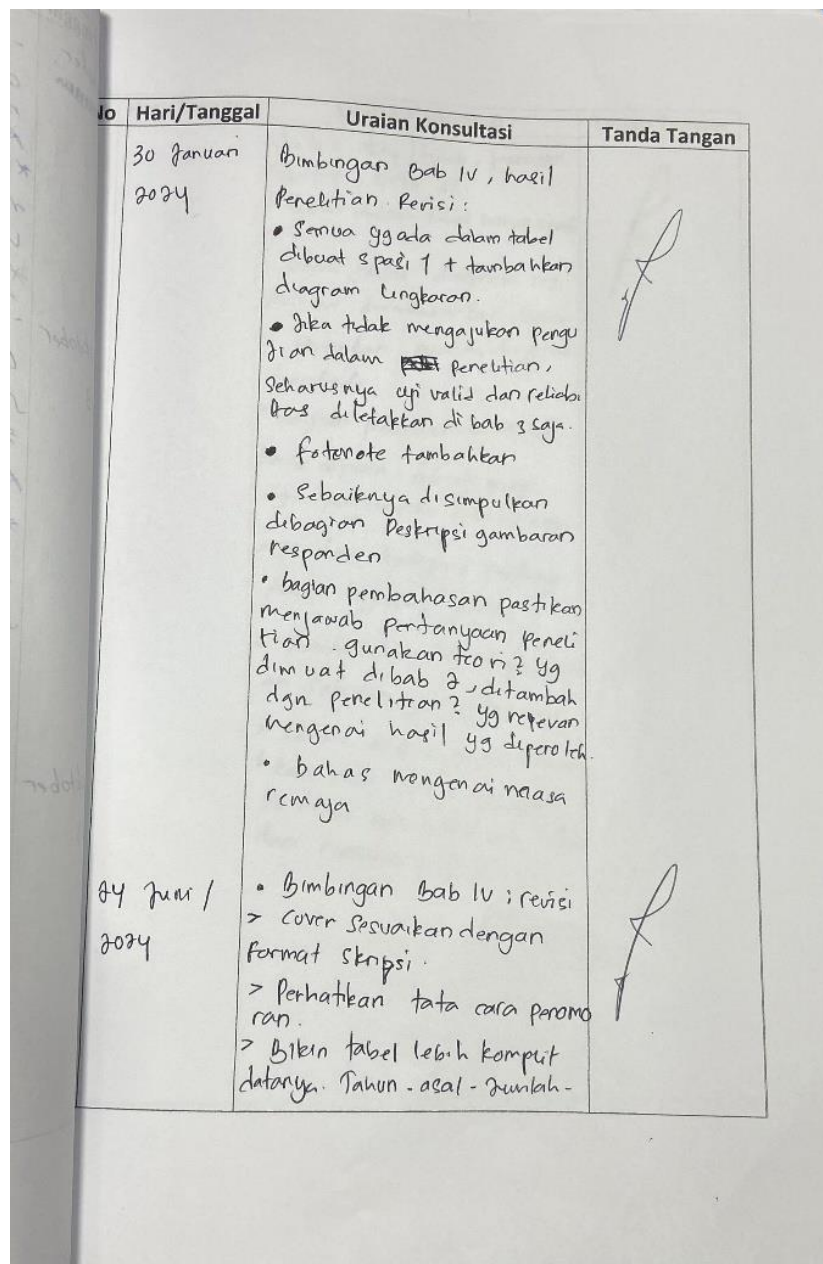 No Hari/Tanggal Uraian Konsultasi Tanda Tangan
30 Januari
2024
Bimbingan Bab IV, hasil
Penelitian. Revisi:
• Semua yg ada dalam tabel
dibuat spasi 1 + tambahkan
diagram lingkaran.
• Jika tidak mengajukan pengu
jian dalam penelitian,
Seharusnya uji valid dan reliabi
litas diletakkan di bab 3 saja.
• fotenote tambahkan
• Sebaiknya disimpulkan
dibagian Deskripsi gambaran
responden
• bagian pembahasan pastikan
menjawab pertanyaan peneli
tian. gunakan teori2 yg
dimuat dibab 2, ditambah
dgn penelitian2 yg relevan
mengenai hasil yg diperoleh.
• bahas mengenai masa
remaja
24 Juni /
2024
• Bimbingan Bab IV ; revisi
> Cover Sesuaikan dengan
format skripsi.
> Perhatikan tata cara penomo
ran.
> Bikin tabel lebih komplit
datanya. Tahun - asal - Jumlah -